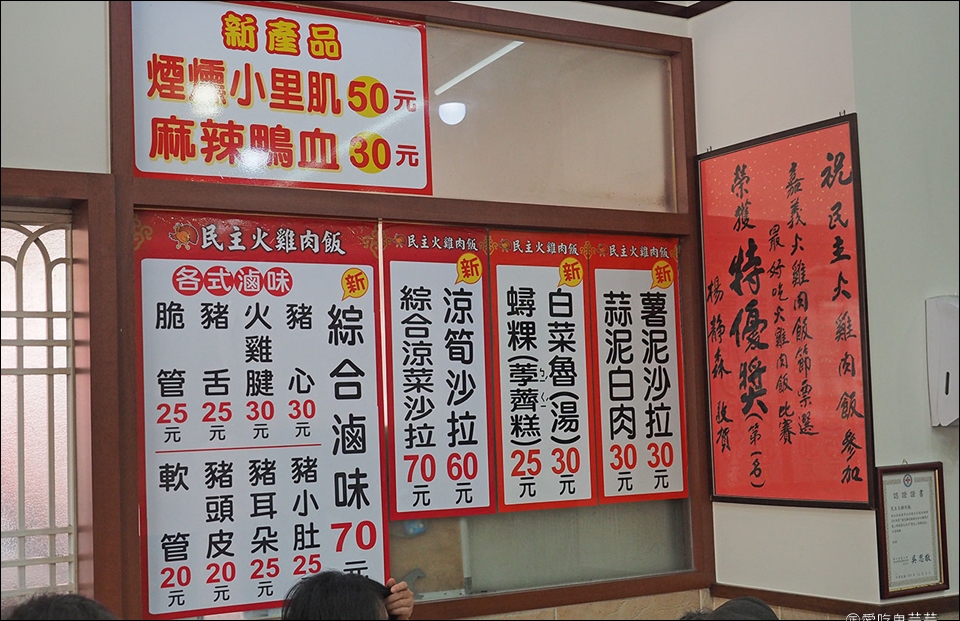 新產品
煙燻小里肌50元
麻辣鴨血30元
民主火雞肉飯
各式滷味
新
綜合滷味70元
豬心30元
火雞腱30元
豬舌25元
脆管25元
豬小肚25元
豬耳朵25元
豬頭皮20元
軟管20元
民主火雞肉飯
新
涼筍沙拉60元
綜合涼菜沙拉70元
民主火雞肉飯
新
白菜魯(湯)30元
蟳粿(荸薺糕)25元
民主火雞肉飯
新
薯泥沙拉30元
蒜泥白肉30元
祝民主火雞肉飯參加
嘉義火雞肉飯節票選
最好吃火雞肉飯比賽
榮獲特優獎(第一名)
楊靜森 敬賀